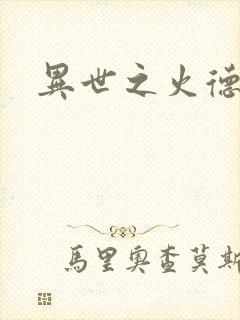 異世之火德
馬里奧查莫斯